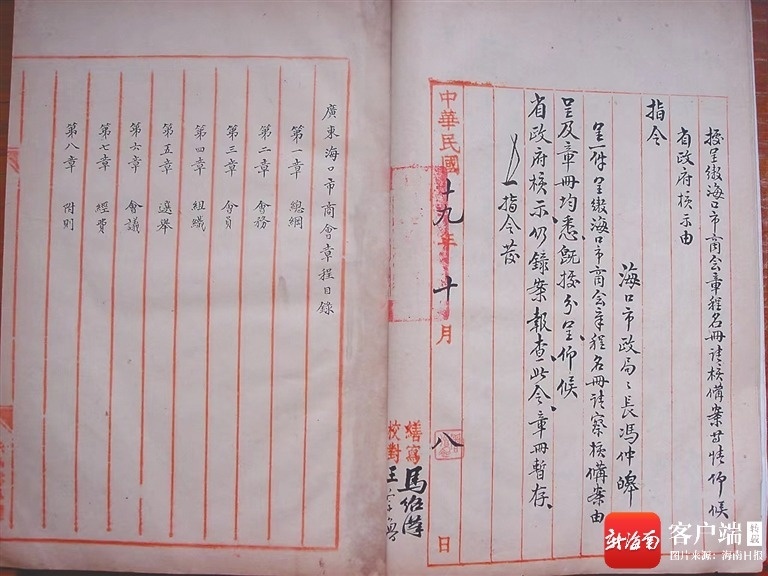 據呈繳海口市商会章程名冊請核備案等情仰候
省政府核示由
指令
海口市政局々長馮仲皞
呈一件呈繳海口市商会章程名冊請察核備案由
呈及章冊均悉既據分呈仰候
省政府核示仍錄案報查此令章冊暫存
指令發
中華民國十九年十月八日
繕寫馬
校對王
廣東海口市商會章程目錄
第一章 總綱
第二章 會務
第三章 會員
第四章 組織
第五章 選舉
第六章 會議
第七章 經費
第八章 附則
新海南
客户端
图片来源：海南日报